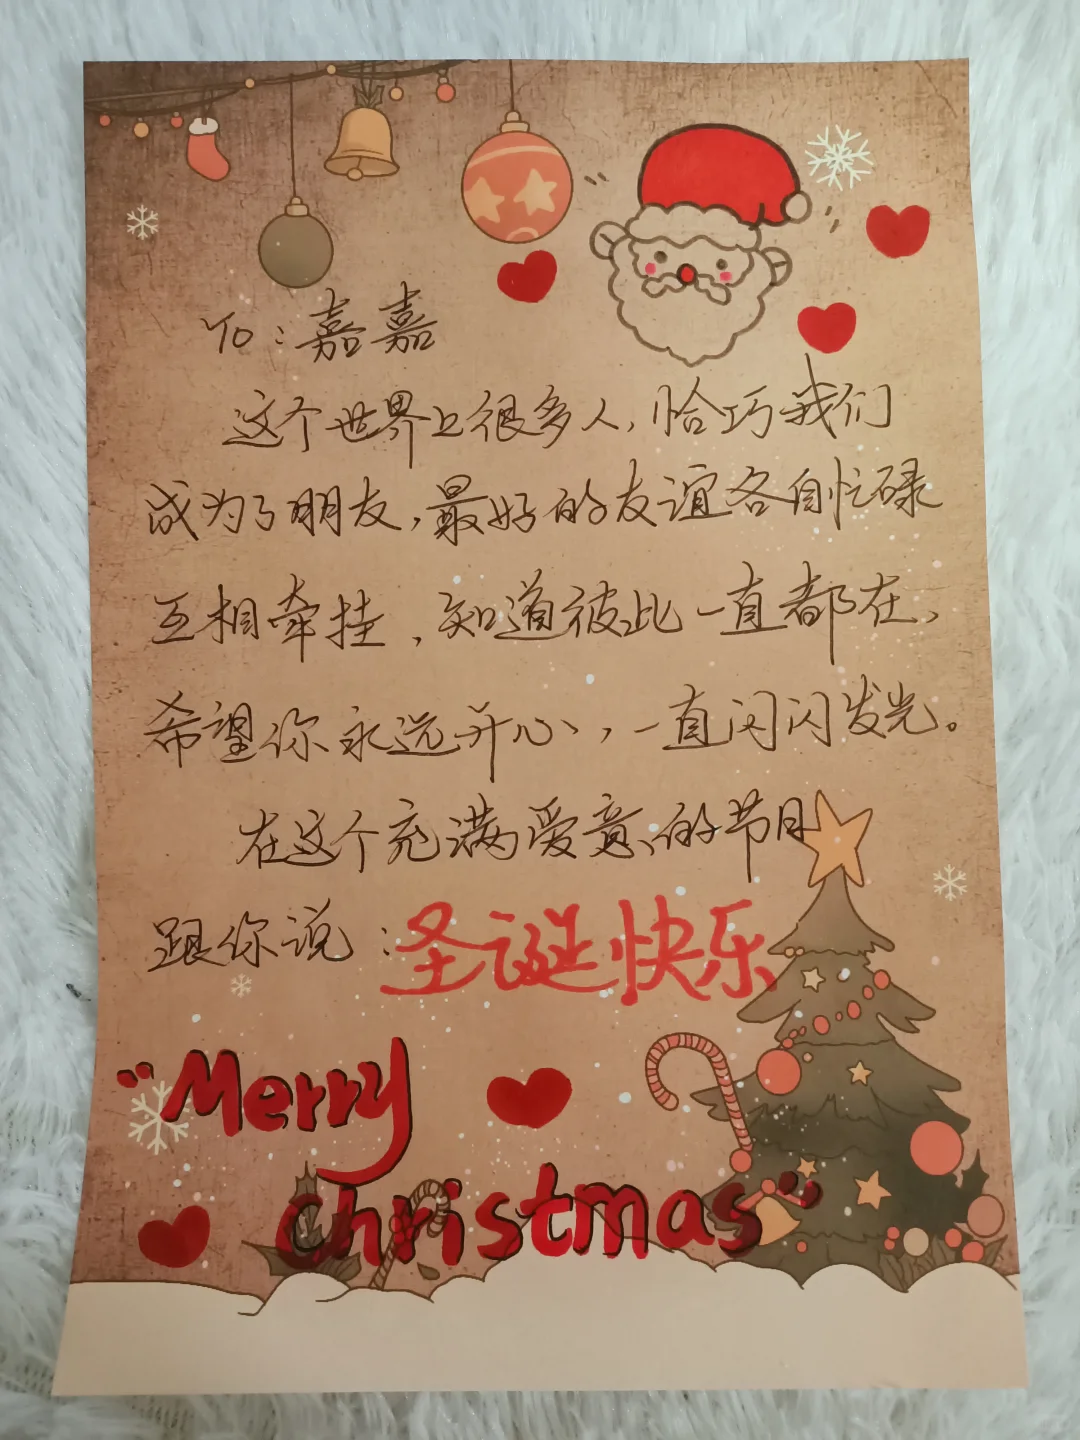 To：嘉嘉
这个世界上很多人，恰巧我们
成为了朋友，最好的友谊各自忙碌
互相牵挂，知道彼此一直都在，
希望你永远开心，一直闪闪发光。
在这个充满爱意的节日
跟你说：圣诞快乐
"Merry
christmas"